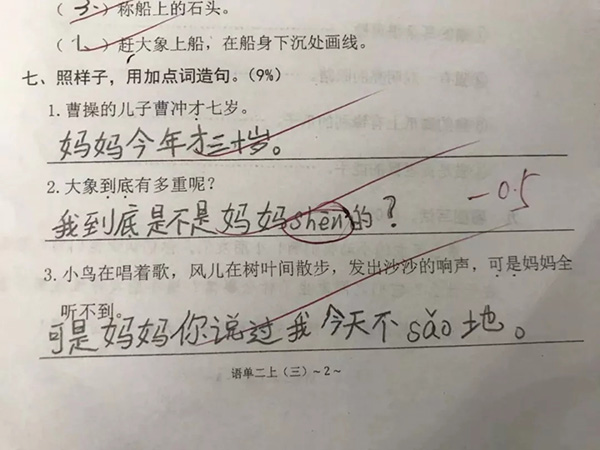 （3）称船上的石头。
（1）赶大象上船，在船身下沉处画线。
七、照样子，用加点词造句。（9%）
1.曹操的儿子曹冲才七岁。
妈妈今年才三十岁。
2.大象到底有多重呢？
我到底是不是妈妈shēn的？
-0.5
3.小鸟在唱着歌，风儿在树叶间散步，发出沙沙的响声，可是妈妈全
听不到。
可是妈妈你说过我今天不sǎo地。
语单二上（三）~2~